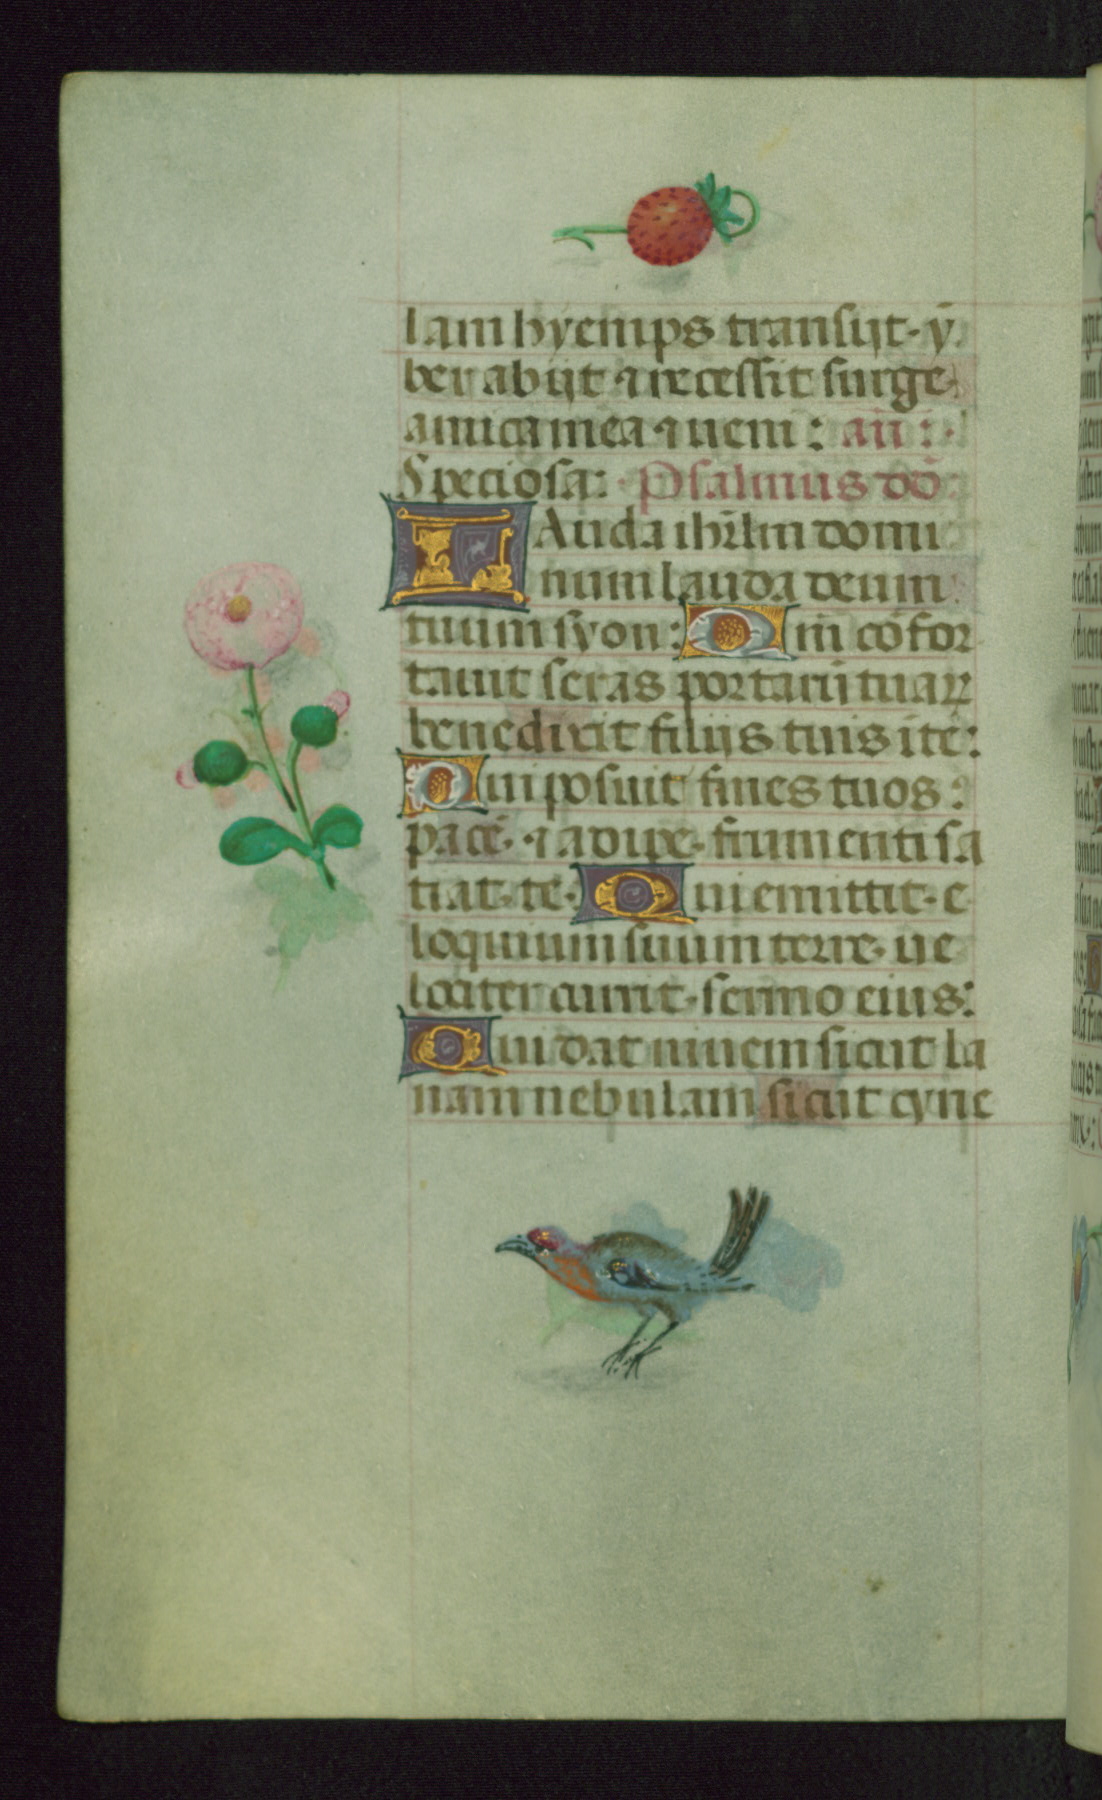 Iam hyemps transijt· ỹ
ber abijt ⁊ recessit surge
amica mea ⁊ ueni : añ :·
Speciosa: · Psalmus dd̄
LAuda ihrlm domi
num lauda deum
tuum syon: Qm̄ cōfor
tauit seras portarū tuaꝝ
benedixit filijs tuis ī te:
Qui posuit fines tuos :
pacē· ⁊ adipe· frumenti sa
tiat· te· Qui emittit· e
loquium suum terre· ue
lociter currit· sermo eius:
Qui dat niuem sicut la
nam nebulam sicut cyne